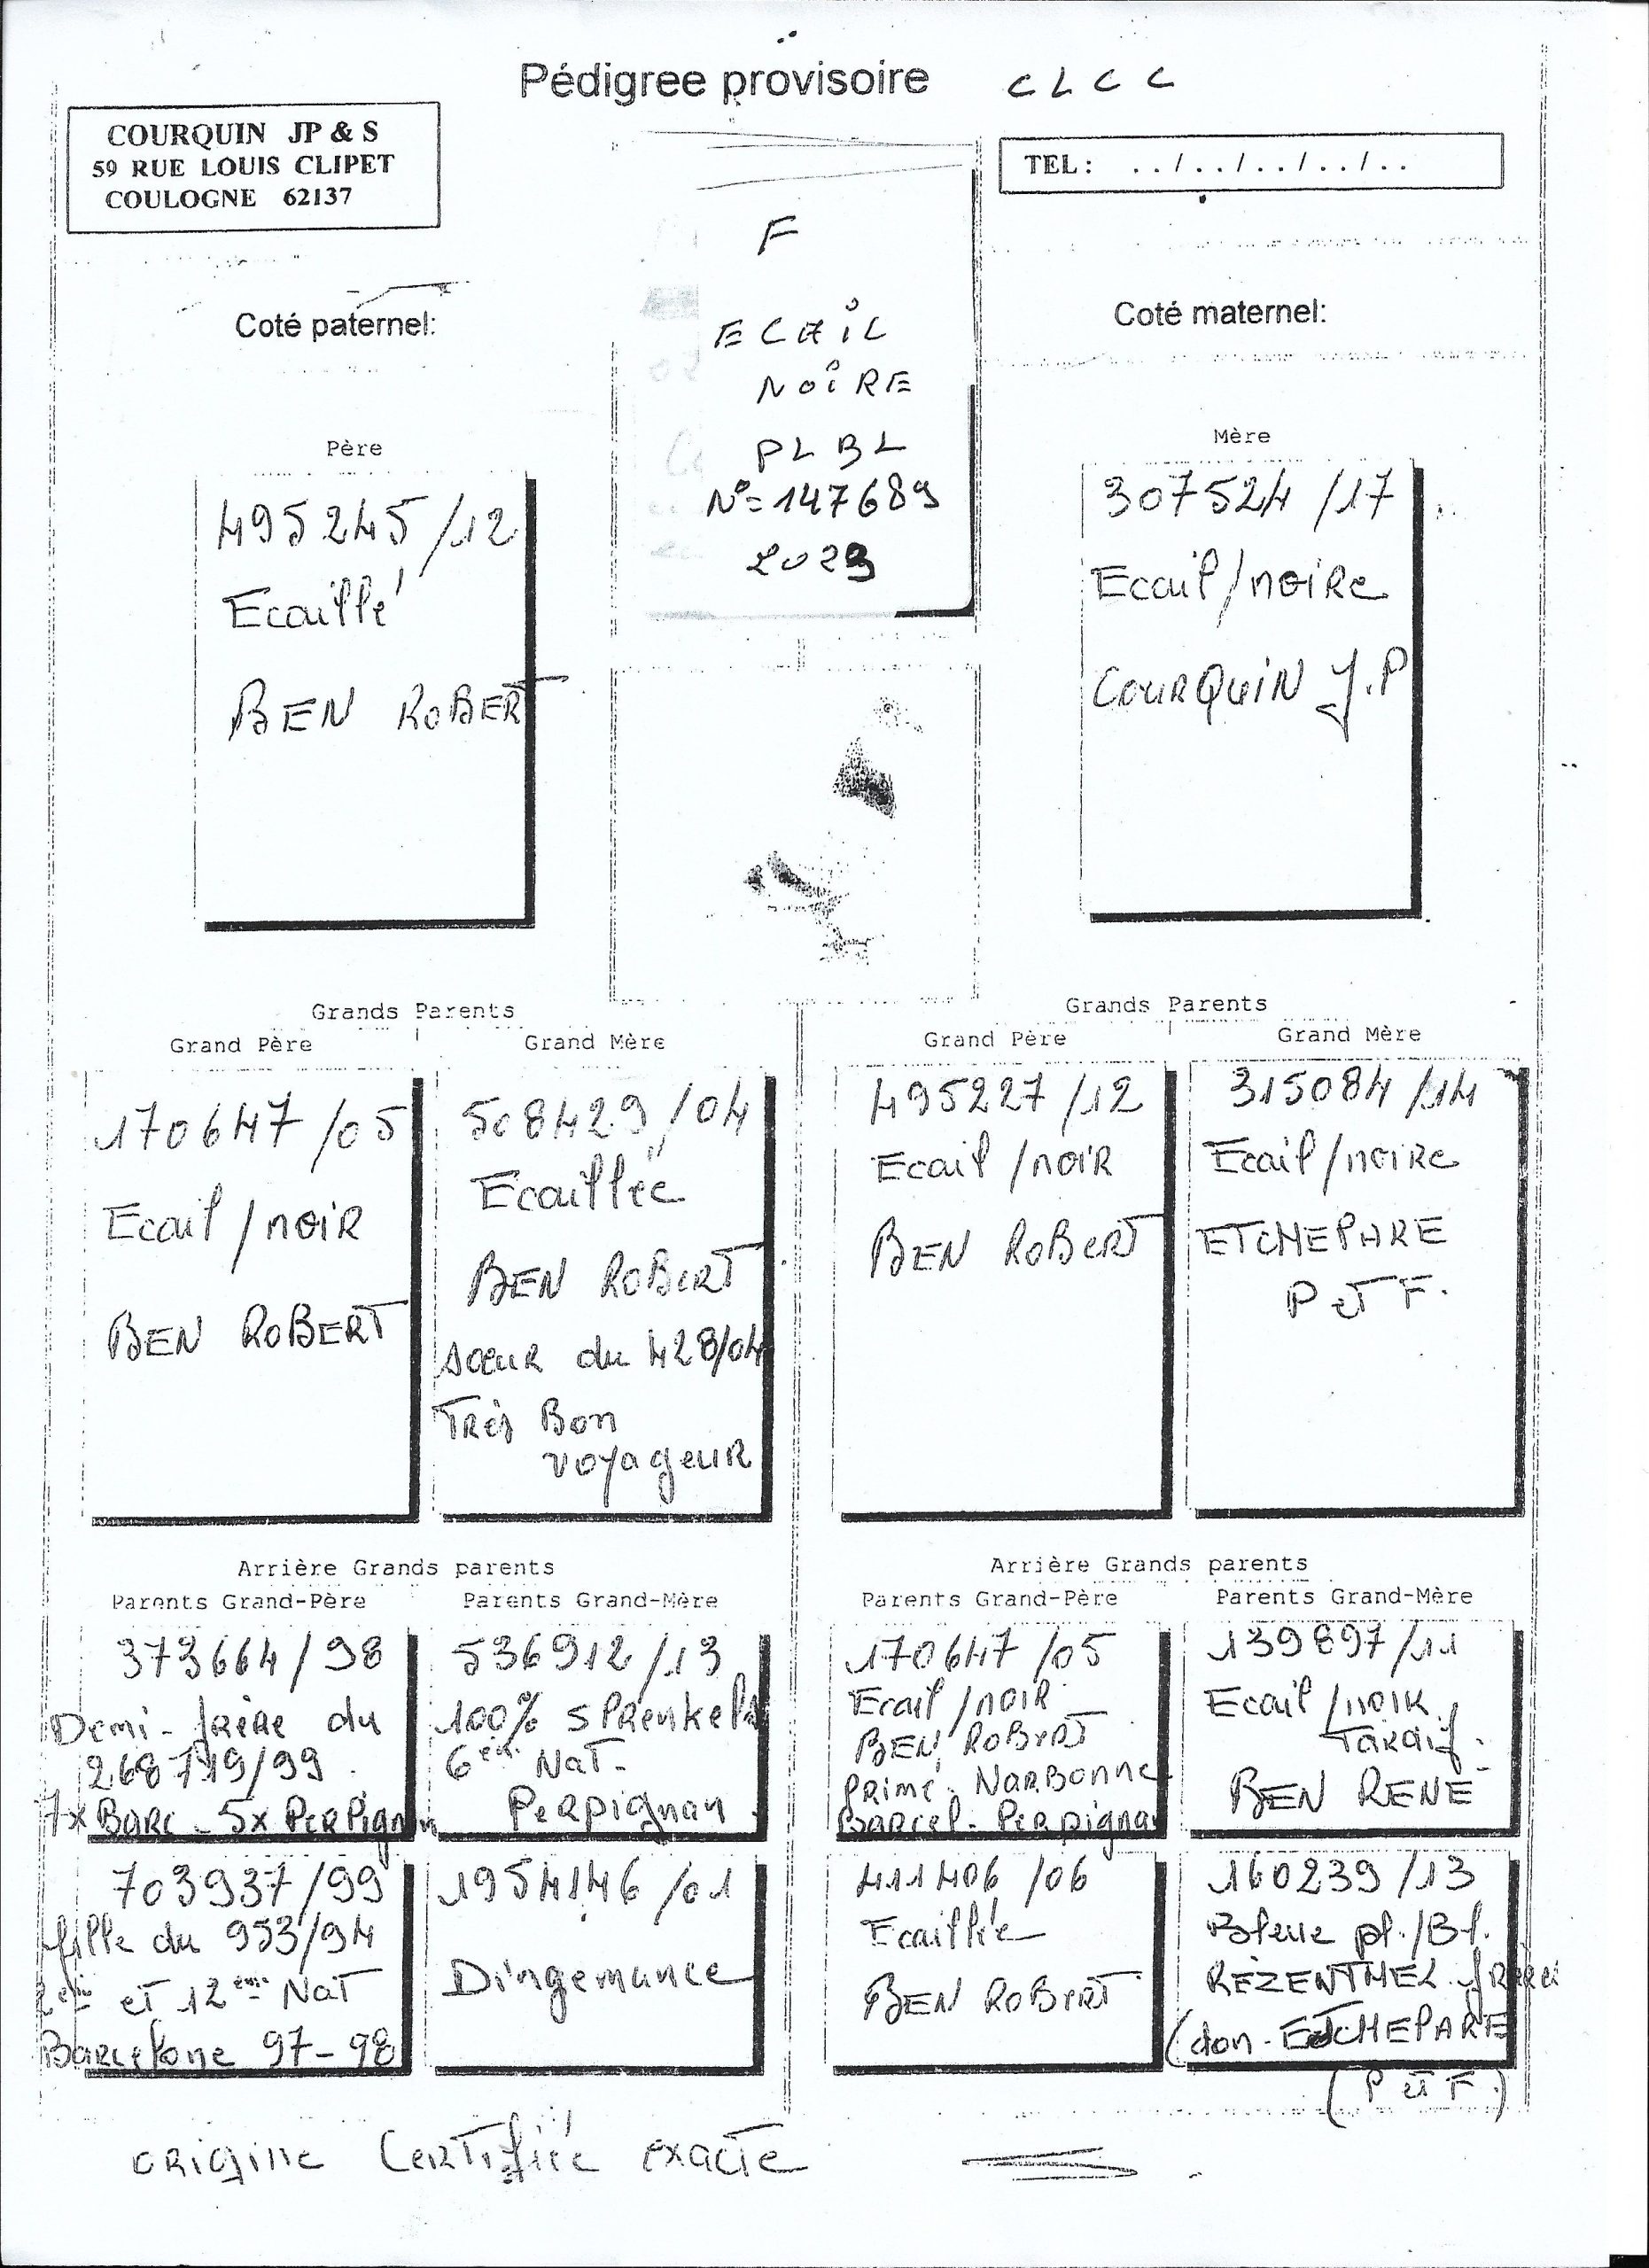 Pédigree provisoire CLCC
COURQUIN JP & S
59 RUE LOUIS CLIPET
COULOGNE 62137
TEL: ../../../../..
F
ECAIL
NOIRE
PLBL
N°=147689
2023
Coté paternel:
Coté maternel:
Père
495245/12
Ecaillé
BEN ROBERT
Mère
307524/17
Ecail/noire
COURQUIN J.P
Grands Parents
Grand Père
Grand Mère
170647/05
Ecail/noir
BEN ROBERT
508429/04
Ecaillée
BEN ROBERT
soeur du 428/04
Très Bon
voyageur
Grands Parents
Grand Père
Grand Mère
495227/12
Ecail/noir
BEN ROBERT
315084/14
Ecail/noire
ETCHEPARE
P et F.
Arrière Grands parents
Parents Grand-Père
Parents Grand-Mère
373664/98
Demi-frère du
268719/99
7x Barc - 5x Perpignan
536912/13
100% SPrenkels
6ème Nat-
Perpignan
703937/99
fille du 953/94
2ème et 12ème Nat
Barcelone 97-98
1954146/01
Dingemance
Arrière Grands parents
Parents Grand-Père
Parents Grand-Mère
170647/05
Ecail/noir
BEN ROBERT
Primé. Narbonne
Barcel-Perpignan
139897/11
Ecail/noir
BEN RENE
411406/06
Ecaillée
BEN ROBERT
160239/13
Bleue pl./Bl.
REZENTHEL frères
(don-ETCHEPARE
(P et F.)
origine Certifiée exacte